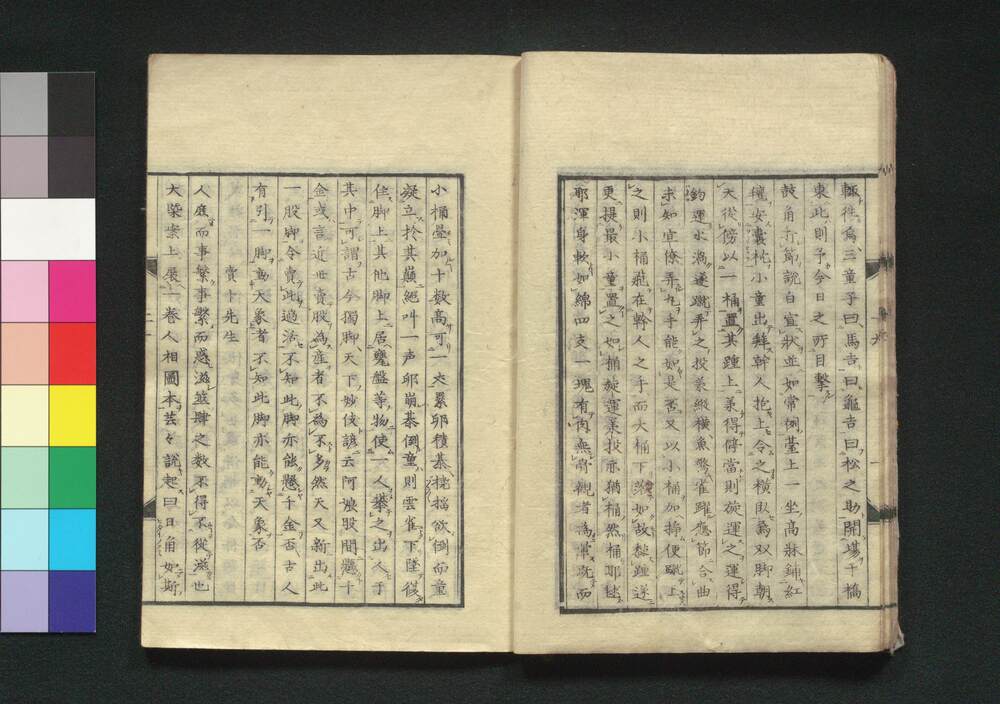 輙性為三童子曰馬吉曰龜吉曰松之助開場于橋
東此則予今日之所目擊
鼓角打節說白宣狀並如常例臺上一坐高牀鋪紅
氊安囊枕小童出粧幹人抱上令之橫臥為双脚朝
天從傍以一桶置其踵上羕得停當則旋運之運得
鈞運水渦遂蹴弄之投羕縱橫魚發雀躍應節合曲
未知宜僚弄丸手能如是否又以小桶加擲便蹴上
之則小桶飛在幹人之手而大桶下落如故黏踵遂
更提最小童置之如桶旋運羕投亦猶桶然桶耶毬
耶渾身軟如綿四支一塊有肉無骨觀者為喝既而
小桶壘加十數高可一丈累卵積棊搖搖欲倒而童
凝立於其巔絕叫一声卵崩棊倒童則雲雀下墜復
住脚上其他脚上居甕盤等物使一人攀之出入于
其中可謂古今獨脚天下妙伎諺云阿娘股間懸千
金或言近世賣股為産者不為不多然天又新出此
一股脚令賣此適法不知此脚亦能懸千金否古人
有引一脚動天象者不知此脚亦能動天象否
賣卜先生
人庭而事繁事繁而惑滋筮肆之数不得不從滋也
大柴案上展一卷人相圖本芸々說起曰日角如斯